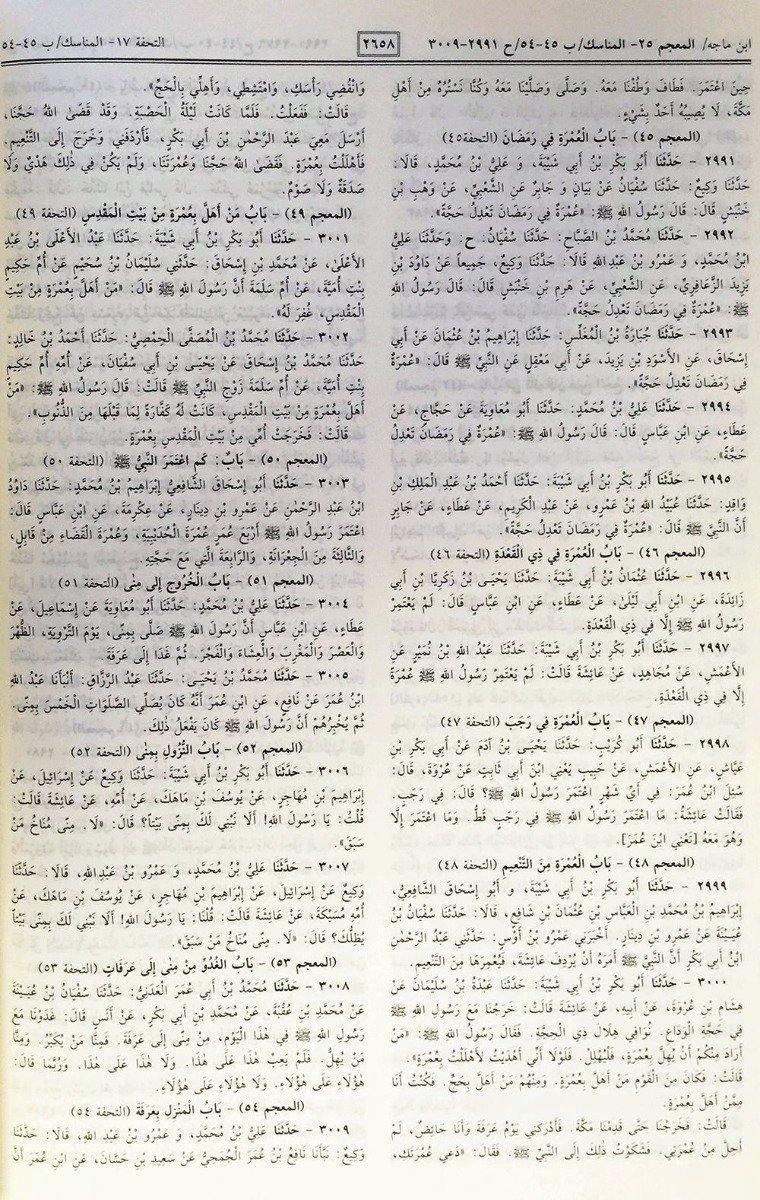 ابن ماجه/ المعجم ٢٥- المناسك/ ب ٤٥-٥٤/ح ٢٩٩١-٣٠٠٩
٢٦٥٨
التحفة ١٧- المناسك/ ب ٤٥-٥٤
حِينَ اعْتَمَرَ. فَطَافَ وَطُفْنَا مَعَهُ. وَصَلَّى وَصَلَّيْنَا مَعَهُ وَكُنَّا نَسْتُرُهُ مِنْ أَهْلِ
مَكَّةَ، لَا يُصِيبُهُ أَحَدٌ بِشَيْءٍ.
(المعجم ٤٥) - بَابُ الْعُمْرَةِ فِي رَمَضَانَ (التحفة٤٥)
٢٩٩١ - حَدَّثَنَا أَبُو بَكْرِ بْنُ أَبِي شَيْبَةَ، وَ عَلِيُّ بْنُ مُحَمَّدٍ، قَالَا:
حَدَّثَنَا وَكِيعٌ: حَدَّثَنَا سُفْيَانُ عَنْ بَيَانٍ وَ جَابِرٍ عَنِ الشَّعْبِيِّ، عَنْ وَهْبِ بْنِ
خَنْبَشٍ قَالَ: قَالَ رَسُولُ اللهِ ﷺ: «عُمْرَةٌ فِي رَمَضَانَ تَعْدِلُ حَجَّةً».
٢٩٩٢ - حَدَّثَنَا مُحَمَّدُ بْنُ الصَّبَّاحِ: حَدَّثَنَا سُفْيَانُ: ح: وَحَدَّثَنَا عَلِيُّ
ابْنُ مُحَمَّدٍ، وَ عَمْرُو بْنُ عَبْدِ اللهِ قَالَا: حَدَّثَنَا وَكِيعٌ، جَمِيعاً عَنْ دَاوُدَ بْنِ
يَزِيدَ الزَّعَافِرِيِّ، عَنِ الشَّعْبِيِّ، عَنْ هَرِمِ بْنِ خَنْبَشٍ قَالَ: قَالَ رَسُولُ اللهِ
ﷺ: «عُمْرَةٌ فِي رَمَضَانَ تَعْدِلُ حَجَّةً».
٢٩٩٣ - حَدَّثَنَا جُبَارَةُ بْنُ الْمُغَلِّسِ: حَدَّثَنَا إِبْرَاهِيمُ بْنُ عُثْمَانَ عَنْ أَبِي
إِسْحَاقَ، عَنِ الْأَسْوَدِ بْنِ يَزِيدَ، عَنْ أَبِي مَعْقِلٍ عَنِ النَّبِيِّ ﷺ قَالَ: «عُمْرَةٌ
فِي رَمَضَانَ تَعْدِلُ حَجَّةً».
٢٩٩٤ - حَدَّثَنَا عَلِيُّ بْنُ مُحَمَّدٍ: حَدَّثَنَا أَبُو مُعَاوِيَةَ عَنْ حَجَّاجٍ، عَنْ
عَطَاءٍ، عَنِ ابْنِ عَبَّاسٍ قَالَ: قَالَ رَسُولُ اللهِ ﷺ: «عُمْرَةٌ فِي رَمَضَانَ تَعْدِلُ
حَجَّةً».
٢٩٩٥ - حَدَّثَنَا أَبُو بَكْرِ بْنُ أَبِي شَيْبَةَ: حَدَّثَنَا أَحْمَدُ بْنُ عَبْدِ الْمَلِكِ بْنِ
وَاقِدٍ: حَدَّثَنَا عُبَيْدُ اللهِ بْنُ عَمْرٍو، عَنْ عَبْدِ الْكَرِيمِ، عَنْ عَطَاءٍ، عَنْ جَابِرٍ
أَنَّ النَّبِيَّ ﷺ قَالَ: «عُمْرَةٌ فِي رَمَضَانَ تَعْدِلُ حَجَّةً».
(المعجم ٤٦) - بَابُ الْعُمْرَةِ فِي ذِي الْقَعْدَةِ (التحفة ٤٦)
٢٩٩٦ - حَدَّثَنَا عُثْمَانُ بْنُ أَبِي شَيْبَةَ: حَدَّثَنَا يَحْيَى بْنُ زَكَرِيَّا بْنِ أَبِي
زَائِدَةَ، عَنِ ابْنِ أَبِي لَيْلَىٰ، عَنْ عَطَاءٍ، عَنِ ابْنِ عَبَّاسٍ قَالَ: لَمْ يَعْتَمِرْ
رَسُولُ اللهِ ﷺ إِلَّا فِي ذِي الْقَعْدَةِ.
٢٩٩٧ - حَدَّثَنَا أَبُو بَكْرِ بْنُ أَبِي شَيْبَةَ: حَدَّثَنَا عَبْدُ اللهِ بْنُ نُمَيْرٍ عَنِ
الْأَعْمَشِ، عَنْ مُجَاهِدٍ، عَنْ عَائِشَةَ قَالَتْ: لَمْ يَعْتَمِرْ رَسُولُ اللهِ ﷺ عُمْرَةً
إِلَّا فِي ذِي الْقَعْدَةِ.
(المعجم ٤٧) - بَابُ الْعُمْرَةِ فِي رَجَبٍ (التحفة ٤٧)
٢٩٩٨ - حَدَّثَنَا أَبُو كُرَيْبٍ: حَدَّثَنَا يَحْيَى بْنُ آدَمَ عَنْ أَبِي بَكْرِ بْنِ
عَيَّاشٍ، عَنِ الْأَعْمَشِ، عَنْ حَبِيبٍ يَعْنِي ابْنَ أَبِي ثَابِتٍ عَنْ عُرْوَةَ، قَالَ:
سُئِلَ ابْنُ عُمَرَ: فِي أَيِّ شَهْرٍ اعْتَمَرَ رَسُولُ اللهِ ﷺ؟ قَالَ: فِي رَجَبٍ.
فَقَالَتْ عَائِشَةُ: مَا اعْتَمَرَ رَسُولُ اللهِ ﷺ فِي رَجَبٍ قَطُّ. وَمَا اعْتَمَرَ إِلَّا
وَهُوَ مَعَهُ [تَعْنِي ابْنَ عُمَرَ].
(المعجم ٤٨) - بَابُ الْعُمْرَةِ مِنَ التَّنْعِيمِ (التحفة ٤٨)
٢٩٩٩ - حَدَّثَنَا أَبُو بَكْرِ بْنُ أَبِي شَيْبَةَ، وَ أَبُو إِسْحَاقَ الشَّافِعِيُّ،
إِبْرَاهِيمُ بْنُ مُحَمَّدِ بْنِ الْعَبَّاسِ بْنِ عُثْمَانَ بْنِ شَافِعٍ، قَالَا: حَدَّثَنَا سُفْيَانُ بْنُ
عُيَيْنَةَ عَنْ عَمْرِو بْنِ دِينَارٍ. أَخْبَرَنِي عَمْرُو بْنُ أَوْسٍ: حَدَّثَنِي عَبْدُ الرَّحْمٰنِ
ابْنُ أَبِي بَكْرٍ أَنَّ النَّبِيَّ ﷺ أَمَرَهُ أَنْ يُرْدِفَ عَائِشَةَ، فَيُعْمِرَهَا مِنَ التَّنْعِيمِ.
٣٠٠٠ - حَدَّثَنَا أَبُو بَكْرِ بْنُ أَبِي شَيْبَةَ: حَدَّثَنَا عَبْدَةُ بْنُ سُلَيْمَانَ عَنْ
هِشَامِ بْنِ عُرْوَةَ، عَنْ أَبِيهِ، عَنْ عَائِشَةَ قَالَتْ: خَرَجْنَا مَعَ رَسُولِ اللهِ ﷺ
فِي حَجَّةِ الْوَدَاعِ. نُوَافِي هِلَالَ ذِي الْحِجَّةِ. فَقَالَ رَسُولُ اللهِ ﷺ: «مَنْ
أَرَادَ مِنْكُمْ أَنْ يُهِلَّ بِعُمْرَةٍ، فَلْيُهْلِلْ. فَلَوْلَا أَنِّي أَهْدَيْتُ لَأَهْلَلْتُ بِعُمْرَةٍ».
قَالَتْ: فَكَانَ مِنَ الْقَوْمِ مَنْ أَهَلَّ بِعُمْرَةٍ. وَمِنْهُمْ مَنْ أَهَلَّ بِحَجٍّ. فَكُنْتُ أَنَا
مِمَّنْ أَهَلَّ بِعُمْرَةٍ.
قَالَتْ: فَخَرَجْنَا حَتَّى قَدِمْنَا مَكَّةَ. فَأَدْرَكَنِي يَوْمُ عَرَفَةَ وَأَنَا حَائِضٌ، لَمْ
أَحِلَّ مِنْ عُمْرَتِي. فَشَكَوْتُ ذٰلِكَ إِلَى النَّبِيِّ ﷺ. فَقَالَ: «دَعِي عُمْرَتَكِ،
وَانْقُضِي رَأْسَكِ، وَامْتَشِطِي، وَأَهِلِّي بِالْحَجِّ».
قَالَتْ: فَفَعَلْتُ. فَلَمَّا كَانَتْ لَيْلَةُ الْحَصْبَةِ. وَقَدْ قَضَى اللهُ حَجَّنَا،
أَرْسَلَ مَعِيَ عَبْدَ الرَّحْمٰنِ بْنَ أَبِي بَكْرٍ، فَأَرْدَفَنِي وَخَرَجَ إِلَى التَّنْعِيمِ،
فَأَهْلَلْتُ بِعُمْرَةٍ. فَقَضَى اللهُ حَجَّنَا وَعُمْرَتَنَا، وَلَمْ يَكُنْ فِي ذٰلِكَ هَدْيٌ وَلَا
صَدَقَةٌ وَلَا صَوْمٌ.
(المعجم ٤٩) - بَابُ مَنْ أَهَلَّ بِعُمْرَةٍ مِنْ بَيْتِ الْمَقْدِسِ (التحفة ٤٩)
٣٠٠١ - حَدَّثَنَا أَبُو بَكْرِ بْنُ أَبِي شَيْبَةَ: حَدَّثَنَا عَبْدُ الْأَعْلَى بْنُ عَبْدِ
الْأَعْلَىٰ، عَنْ مُحَمَّدِ بْنِ إِسْحَاقَ: حَدَّثَنِي سُلَيْمَانُ بْنُ سُحَيْمٍ عَنْ أُمِّ حَكِيمٍ
بِنْتِ أُمَيَّةَ، عَنْ أُمِّ سَلَمَةَ أَنَّ رَسُولَ اللهِ ﷺ قَالَ: «مَنْ أَهَلَّ بِعُمْرَةٍ مِنْ بَيْتِ
الْمَقْدِسِ، غُفِرَ لَهُ».
٣٠٠٢ - حَدَّثَنَا مُحَمَّدُ بْنُ الْمُصَفَّى الْحِمْصِيُّ: حَدَّثَنَا أَحْمَدُ بْنُ خَالِدٍ:
حَدَّثَنَا مُحَمَّدُ بْنُ إِسْحَاقَ عَنْ يَحْيَى بْنِ أَبِي سُفْيَانَ، عَنْ أُمِّهِ أُمِّ حَكِيمٍ
بِنْتِ أُمَيَّةَ، عَنْ أُمِّ سَلَمَةَ زَوْجِ النَّبِيِّ ﷺ قَالَتْ: قَالَ رَسُولُ اللهِ ﷺ: «مَنْ
أَهَلَّ بِعُمْرَةٍ مِنْ بَيْتِ الْمَقْدِسِ، كَانَتْ لَهُ كَفَّارَةً لِمَا قَبْلَهَا مِنَ الذُّنُوبِ».
قَالَتْ: فَخَرَجَتْ أُمِّي مِنْ بَيْتِ الْمَقْدِسِ بِعُمْرَةٍ.
(المعجم ٥٠) - بَابٌ: كَمِ اعْتَمَرَ النَّبِيُّ ﷺ (التحفة ٥٠)
٣٠٠٣ - حَدَّثَنَا أَبُو إِسْحَاقَ الشَّافِعِيُّ إِبْرَاهِيمُ بْنُ مُحَمَّدٍ: حَدَّثَنَا دَاوُدُ
ابْنُ عَبْدِ الرَّحْمٰنِ عَنْ عَمْرِو بْنِ دِينَارٍ، عَنْ عِكْرِمَةَ، عَنِ ابْنِ عَبَّاسٍ قَالَ:
اعْتَمَرَ رَسُولُ اللهِ ﷺ أَرْبَعَ عُمَرٍ عُمْرَةَ الْحُدَيْبِيَةِ، وَعُمْرَةَ الْقَضَاءِ مِنْ قَابِلٍ،
وَالثَّالِثَةَ مِنَ الْجِعْرَانَةِ، وَالرَّابِعَةَ الَّتِي مَعَ حَجَّتِهِ.
(المعجم ٥١) - بَابُ الْخُرُوجِ إِلَى مِنًى (التحفة ٥١)
٣٠٠٤ - حَدَّثَنَا عَلِيُّ بْنُ مُحَمَّدٍ: حَدَّثَنَا أَبُو مُعَاوِيَةَ عَنْ إِسْمَاعِيلَ، عَنْ
عَطَاءٍ، عَنِ ابْنِ عَبَّاسٍ أَنَّ رَسُولَ اللهِ ﷺ صَلَّى بِمِنًى، يَوْمَ التَّرْوِيَةِ، الظُّهْرَ
وَالْعَصْرَ وَالْمَغْرِبَ وَالْعِشَاءَ وَالْفَجْرَ. ثُمَّ غَدَا إِلَى عَرَفَةَ.
٣٠٠٥ - حَدَّثَنَا مُحَمَّدُ بْنُ يَحْيَىٰ: حَدَّثَنَا عَبْدُ الرَّزَّاقِ: أَنْبَأَنَا عَبْدُ اللهِ
ابْنُ عُمَرَ عَنْ نَافِعٍ، عَنِ ابْنِ عُمَرَ أَنَّهُ كَانَ يُصَلِّي الصَّلَوَاتِ الْخَمْسَ بِمِنًى.
ثُمَّ يُخْبِرُهُمْ أَنَّ رَسُولَ اللهِ ﷺ كَانَ يَفْعَلُ ذٰلِكَ.
(المعجم ٥٢) - بَابُ النُّزُولِ بِمِنًى (التحفة ٥٢)
٣٠٠٦ - حَدَّثَنَا أَبُو بَكْرِ بْنُ أَبِي شَيْبَةَ: حَدَّثَنَا وَكِيعٌ عَنْ إِسْرَائِيلَ، عَنْ
إِبْرَاهِيمَ بْنِ مُهَاجِرٍ، عَنْ يُوسُفَ بْنِ مَاهَكَ، عَنْ أُمِّهِ، عَنْ عَائِشَةَ قَالَتْ:
قُلْتُ: يَا رَسُولَ اللهِ! أَلَا نَبْنِي لَكَ بِمِنًى بَيْتاً؟ قَالَ: «لَا. مِنًى مُنَاخُ مَنْ
سَبَقَ».
٣٠٠٧ - حَدَّثَنَا عَلِيُّ بْنُ مُحَمَّدٍ، وَ عَمْرُو بْنُ عَبْدِاللهِ، قَالَا: حَدَّثَنَا
وَكِيعٌ عَنْ إِسْرَائِيلَ، عَنْ إِبْرَاهِيمَ بْنِ مُهَاجِرٍ، عَنْ يُوسُفَ بْنِ مَاهَكَ، عَنْ
أُمِّهِ مُسَيْكَةَ، عَنْ عَائِشَةَ قَالَتْ: قُلْنَا: يَا رَسُولَ اللهِ! أَلَا نَبْنِي لَكَ بِمِنًى بَيْتاً
يُظِلُّكَ؟ قَالَ: «لَا. مِنًى مُنَاخُ مَنْ سَبَقَ».
(المعجم ٥٣) - بَابُ الْغُدُوِّ مِنْ مِنًى إِلَى عَرَفَاتٍ (التحفة ٥٣)
٣٠٠٨ - حَدَّثَنَا مُحَمَّدُ بْنُ أَبِي عُمَرَ الْعَدَنِيُّ: حَدَّثَنَا سُفْيَانُ بْنُ عُيَيْنَةَ
عَنْ مُحَمَّدِ بْنِ عُقْبَةَ، عَنْ مُحَمَّدِ بْنِ أَبِي بَكْرٍ، عَنْ أَنَسٍ قَالَ: غَدَوْنَا مَعَ
رَسُولِ اللهِ ﷺ فِي هٰذَا الْيَوْمِ، مِنْ مِنًى إِلَى عَرَفَةَ. فَمِنَّا مَنْ يُكَبِّرُ. وَمِنَّا
مَنْ يُهِلُّ. فَلَمْ يَعِبْ هٰذَا عَلَى هٰذَا. وَلَا هٰذَا عَلَى هٰذَا. وَرُبَّمَا قَالَ:
هٰؤُلَاءِ عَلَى هٰؤُلَاءِ. وَلَا هٰؤُلَاءِ عَلَى هٰؤُلَاءِ.
(المعجم ٥٤) - بَابُ الْمَنْزِلِ بِعَرَفَةَ (التحفة ٥٤)
٣٠٠٩ - حَدَّثَنَا عَلِيُّ بْنُ مُحَمَّدٍ، وَ عَمْرُو بْنُ عَبْدِ اللهِ، قَالَا: حَدَّثَنَا
وَكِيعٌ: نَبَّأَنَا نَافِعُ بْنُ عُمَرَ الْجُمَحِيُّ عَنْ سَعِيدِ بْنِ حَسَّانَ، عَنِ ابْنِ عُمَرَ أَنَّ